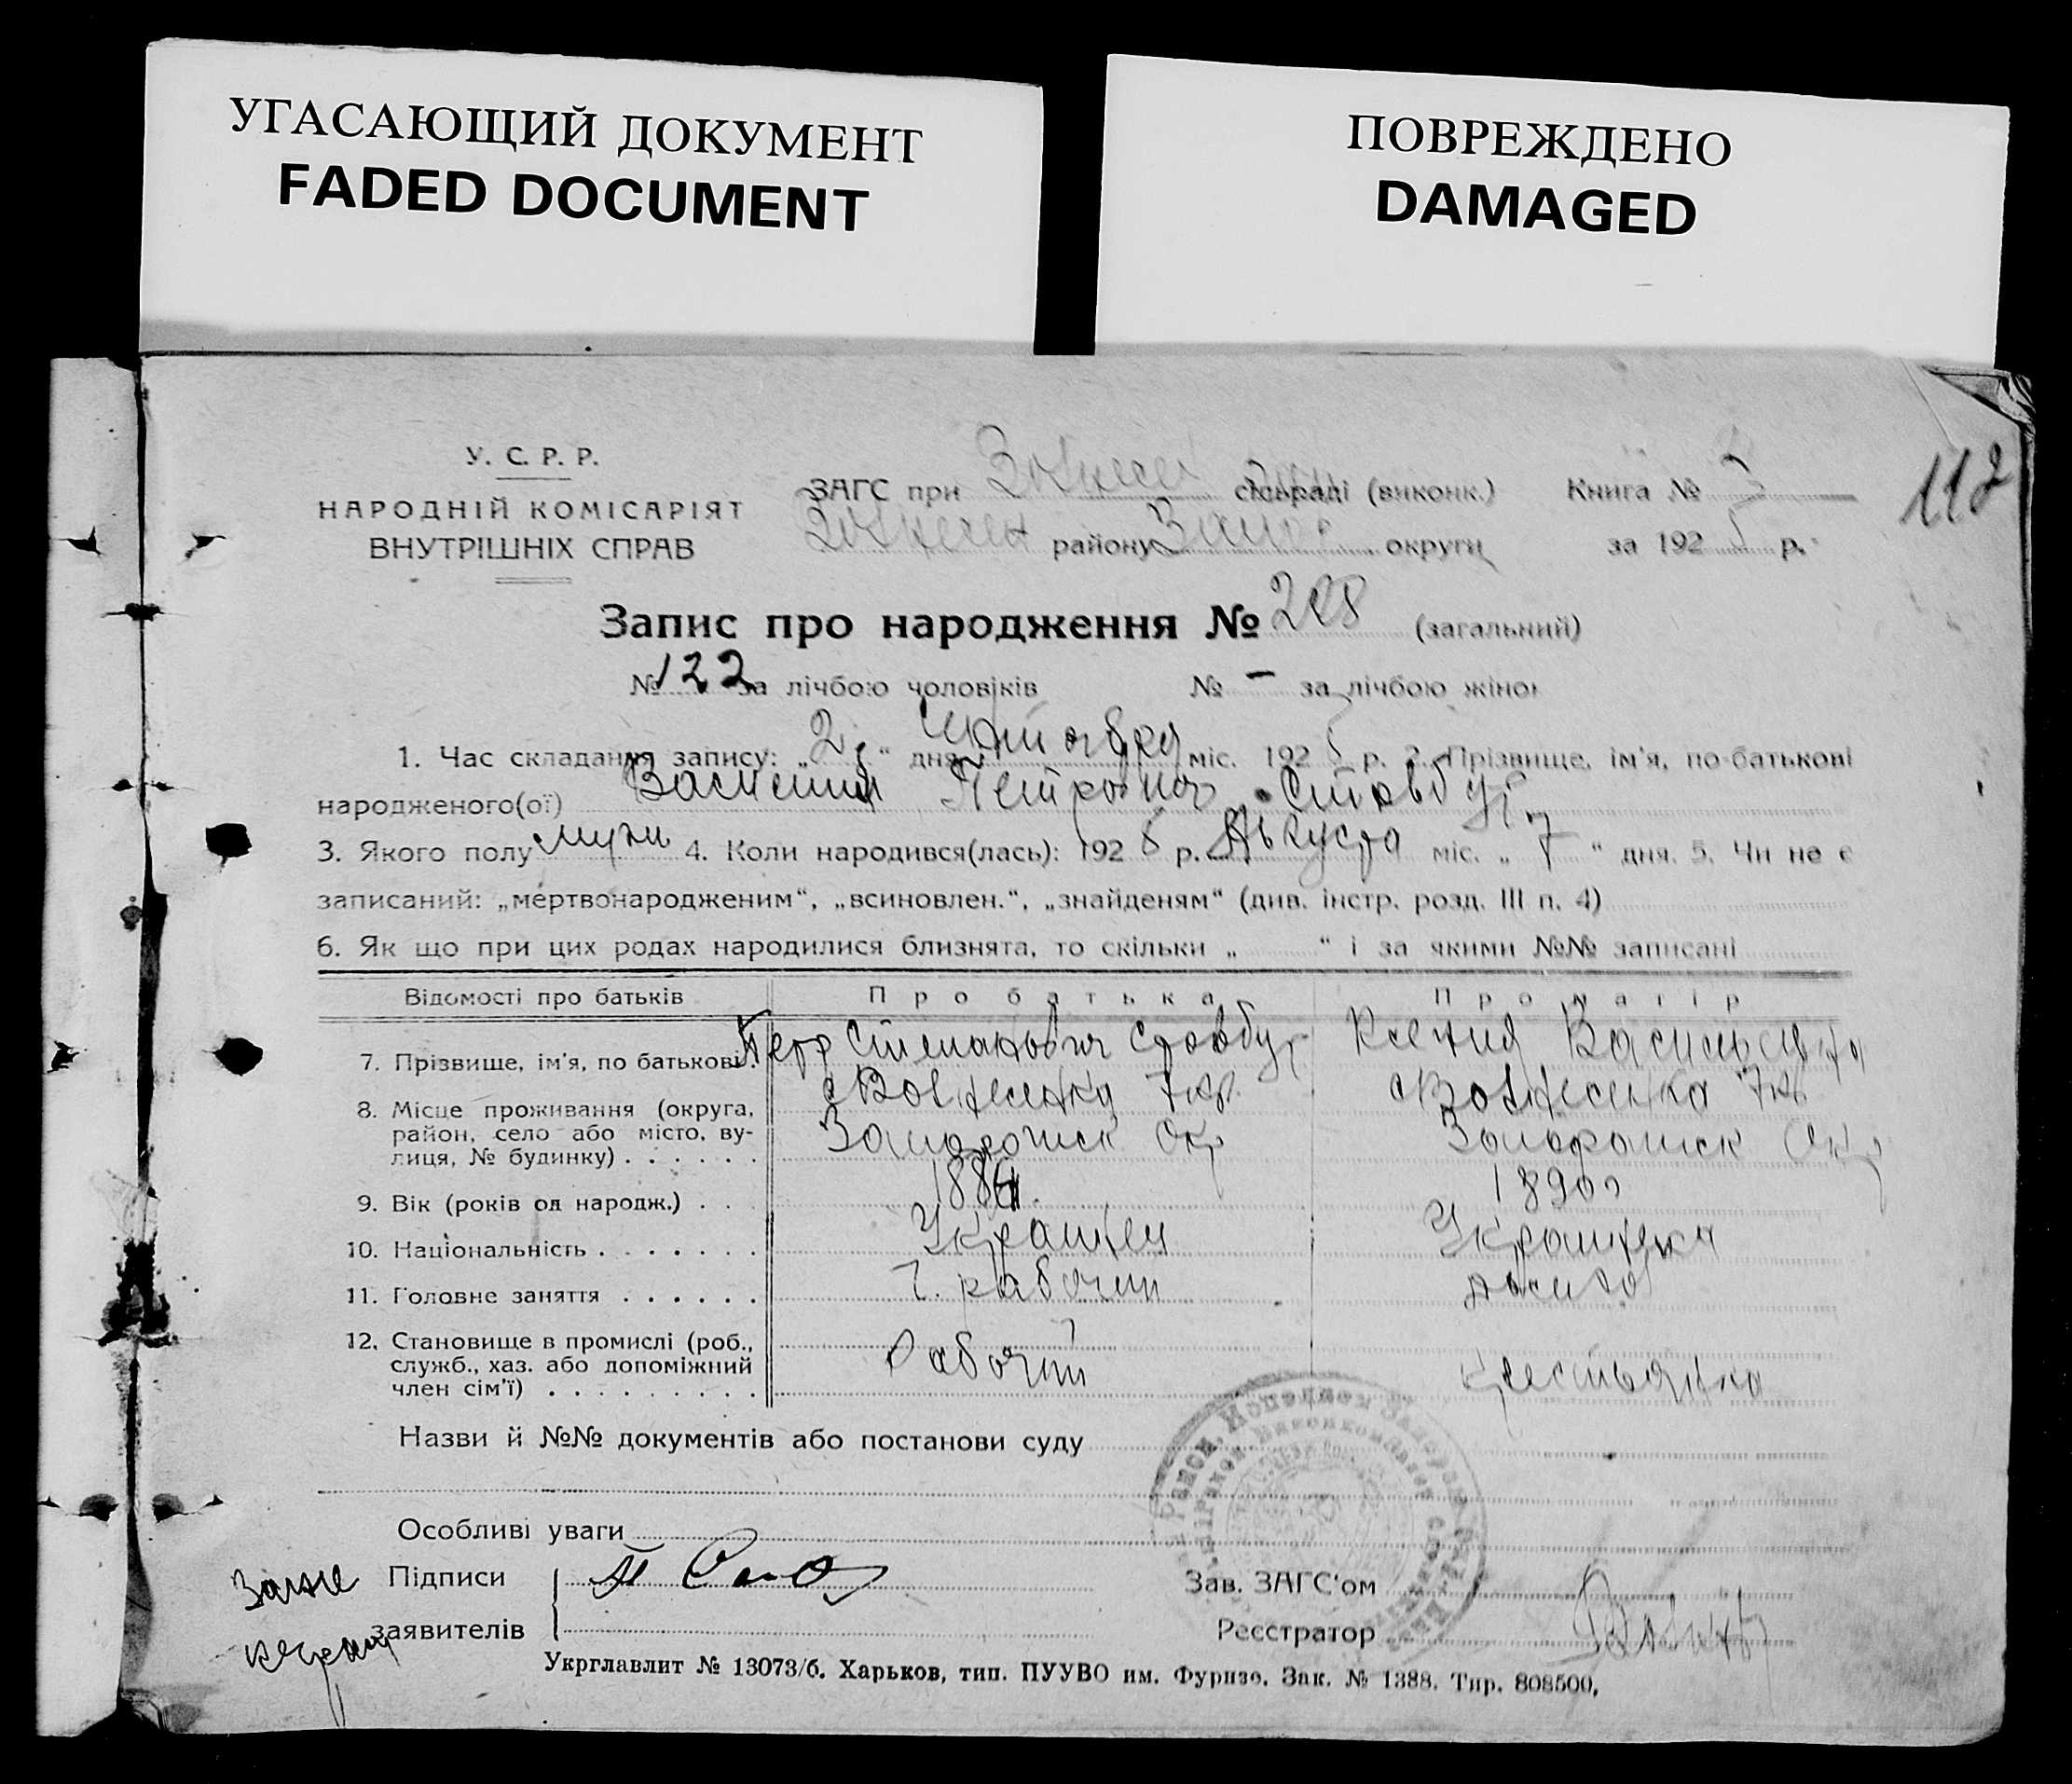 УГАСАЮЩИЙ ДОКУМЕНТ
FADED DOCUMENT
ПОВРЕЖДЕНО
DAMAGED
112
У. С. Р. Р.
НАРОДНІЙ КОМІСАРІЯТ
ВНУТРІШНІХ СПРАВ
ЗАГС при Вознесен сільраді (виконк.)
Вознесен району Запор округи
Книга № 3
за 1925 р.
Запис про народження № (загальний)
№ 122 за лічбою чоловіків № – за лічбою жінок
1. Час складання запису: „2 “ дня міс. 1925 р. 2. Прізвище, ім'я, по-батькові
народженого(ої) Василий Петрович Стовбур
3. Якого полу мужс 4. Коли народився(лась): 1925 р. Августа міс. „7“ дня. 5. Чи не є
записаний: „мертвонародженим“, „всиновлен.“, „знайденям“ (див. інстр. розд. III п. 4)
6. Як що при цих родах народилися близнята, то скільки „ “ і за якими №№ записані
Відомості про батьків Про батька Про матір
7. Прізвище, ім'я, по батькові. Петр Степанович Стовбур Ксения Васильевна
8. Місце проживання (округа, с Вознесенка 7 кв. с Вознесенка 7 кв
район, село або місто, ву- Запорожск Окр Запорожск Окр
лиця, № будинку)
9. Вік (років од народж.) 1890
10. Національність Украинец Украинка
11. Головне заняття рабочий
12. Становище в промислі (роб., Рабочий крестьянка
служб., хаз. або допоміжний
член сім'ї)
Назви й №№ документів або постанови суду
Особливі уваги
Підписи
заявителів
Зав. ЗАГС'ом
Реєстратор
Укрглавлит № 13073/б. Харьков, тип. ПУУВО им. Фрунзе. Зак. № 1388. Тир. 808500,